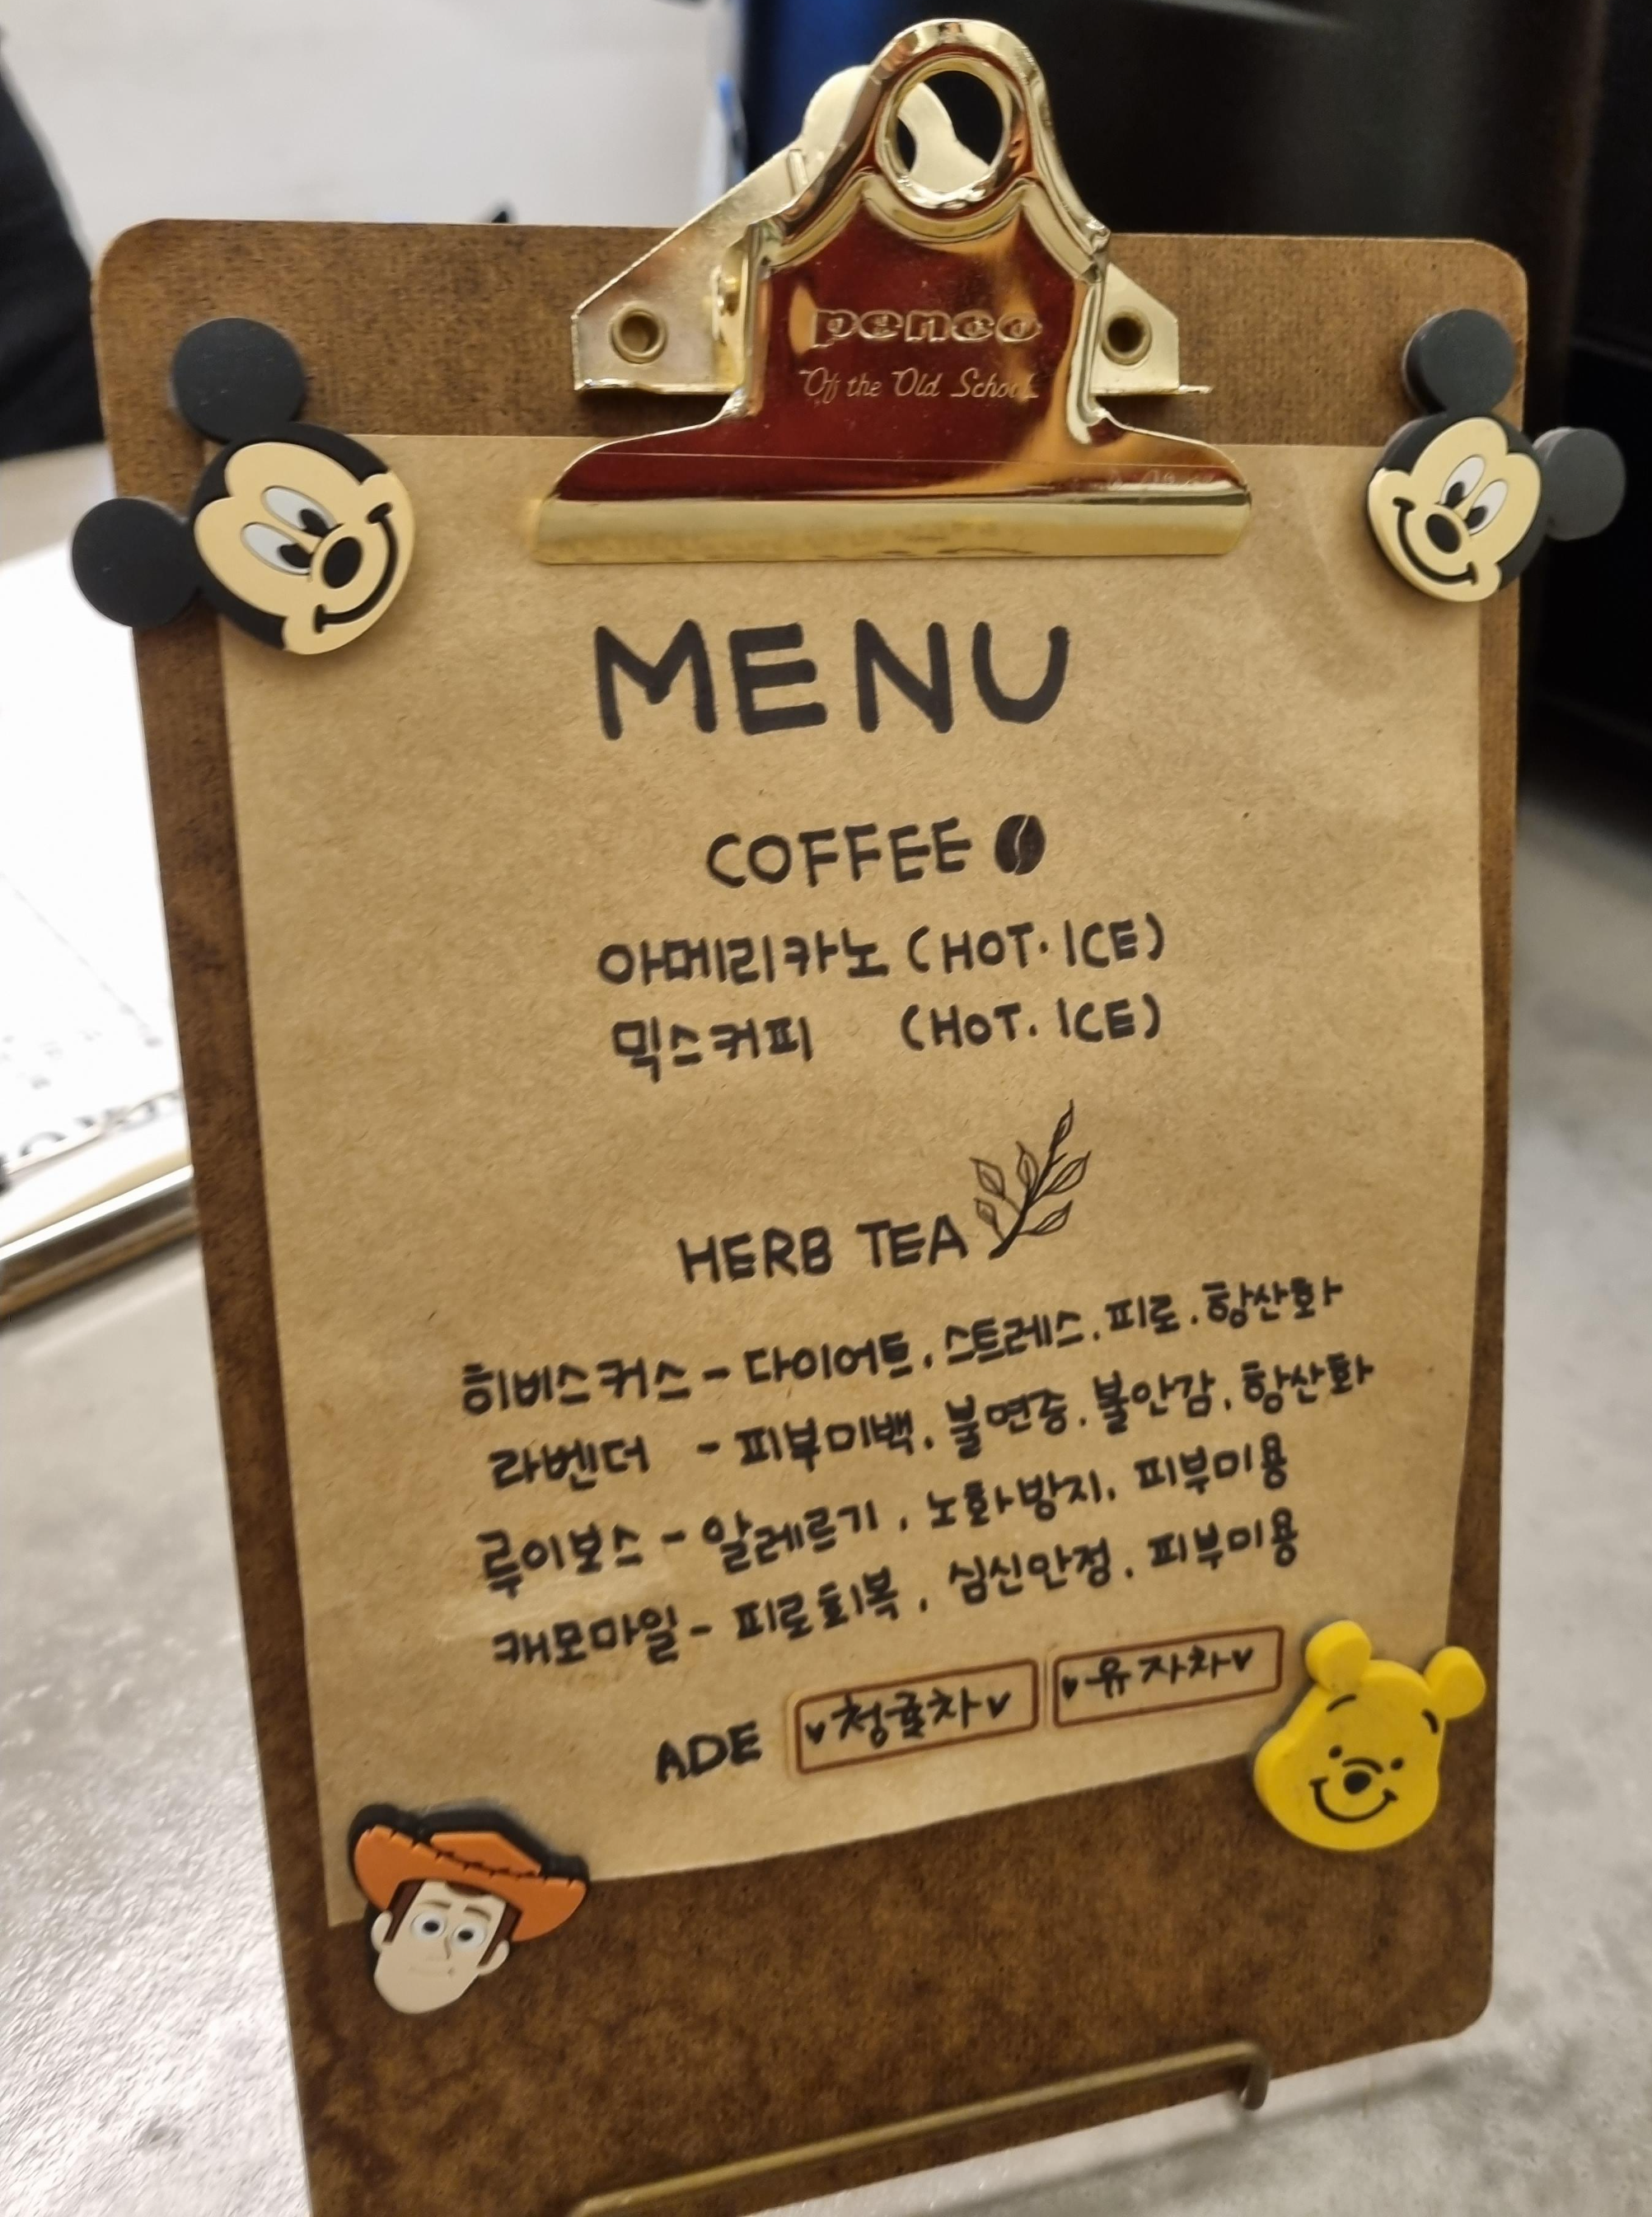 penco
Of the Old School
MENU
COFFEE
아메리카노 (HOT. ICE)
믹스커피 (HOT. ICE)
HERB TEA
히비스커스 - 다이어트, 스트레스, 피로, 항산화
라벤더 - 피부미백, 불면증, 불안감, 항산화
루이보스 - 알레르기, 노화방지, 피부미용
캐모마일 - 피로회복, 심신안정, 피부미용
ADE ♥청귤차♥ ♥유자차♥